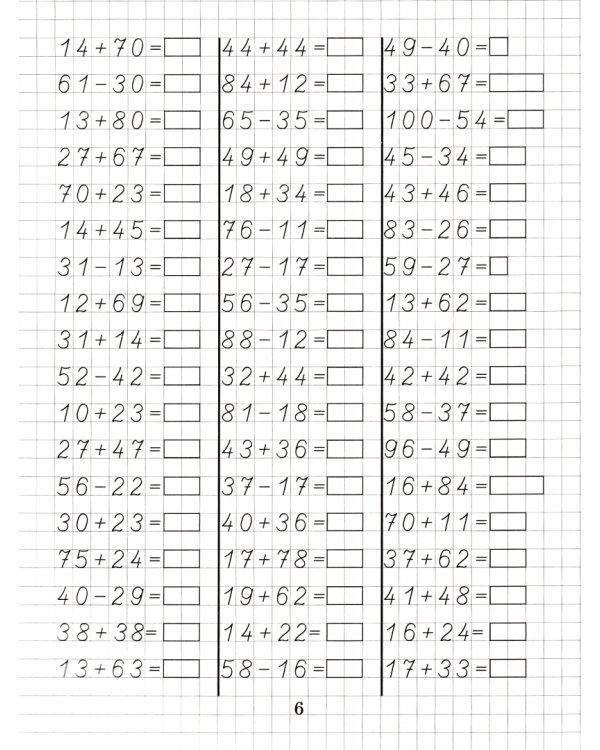 14+70=
61-30=
13+80=
27+67=
70+23=
14+45=
31-13=
12+69=
31+14=
52-42=
10+23=
27+47=
56-22=
30+23=
75+24=
40-29=
38+38=
13+63=
44+44=
84+12=
65-35=
49+49=
18+34=
76-11=
27-17=
56-35=
88-12=
32+44=
81-18=
43+36=
37-17=
40+36=
17+78=
19+62=
14+22=
58-16=
49-40=
33+67=
100-54=
45-34=
43+46=
83-26=
59-27=
13+62=
84-11=
42+42=
58-37=
96-49=
16+84=
70+11=
37+62=
41+48=
16+24=
17+33=
6